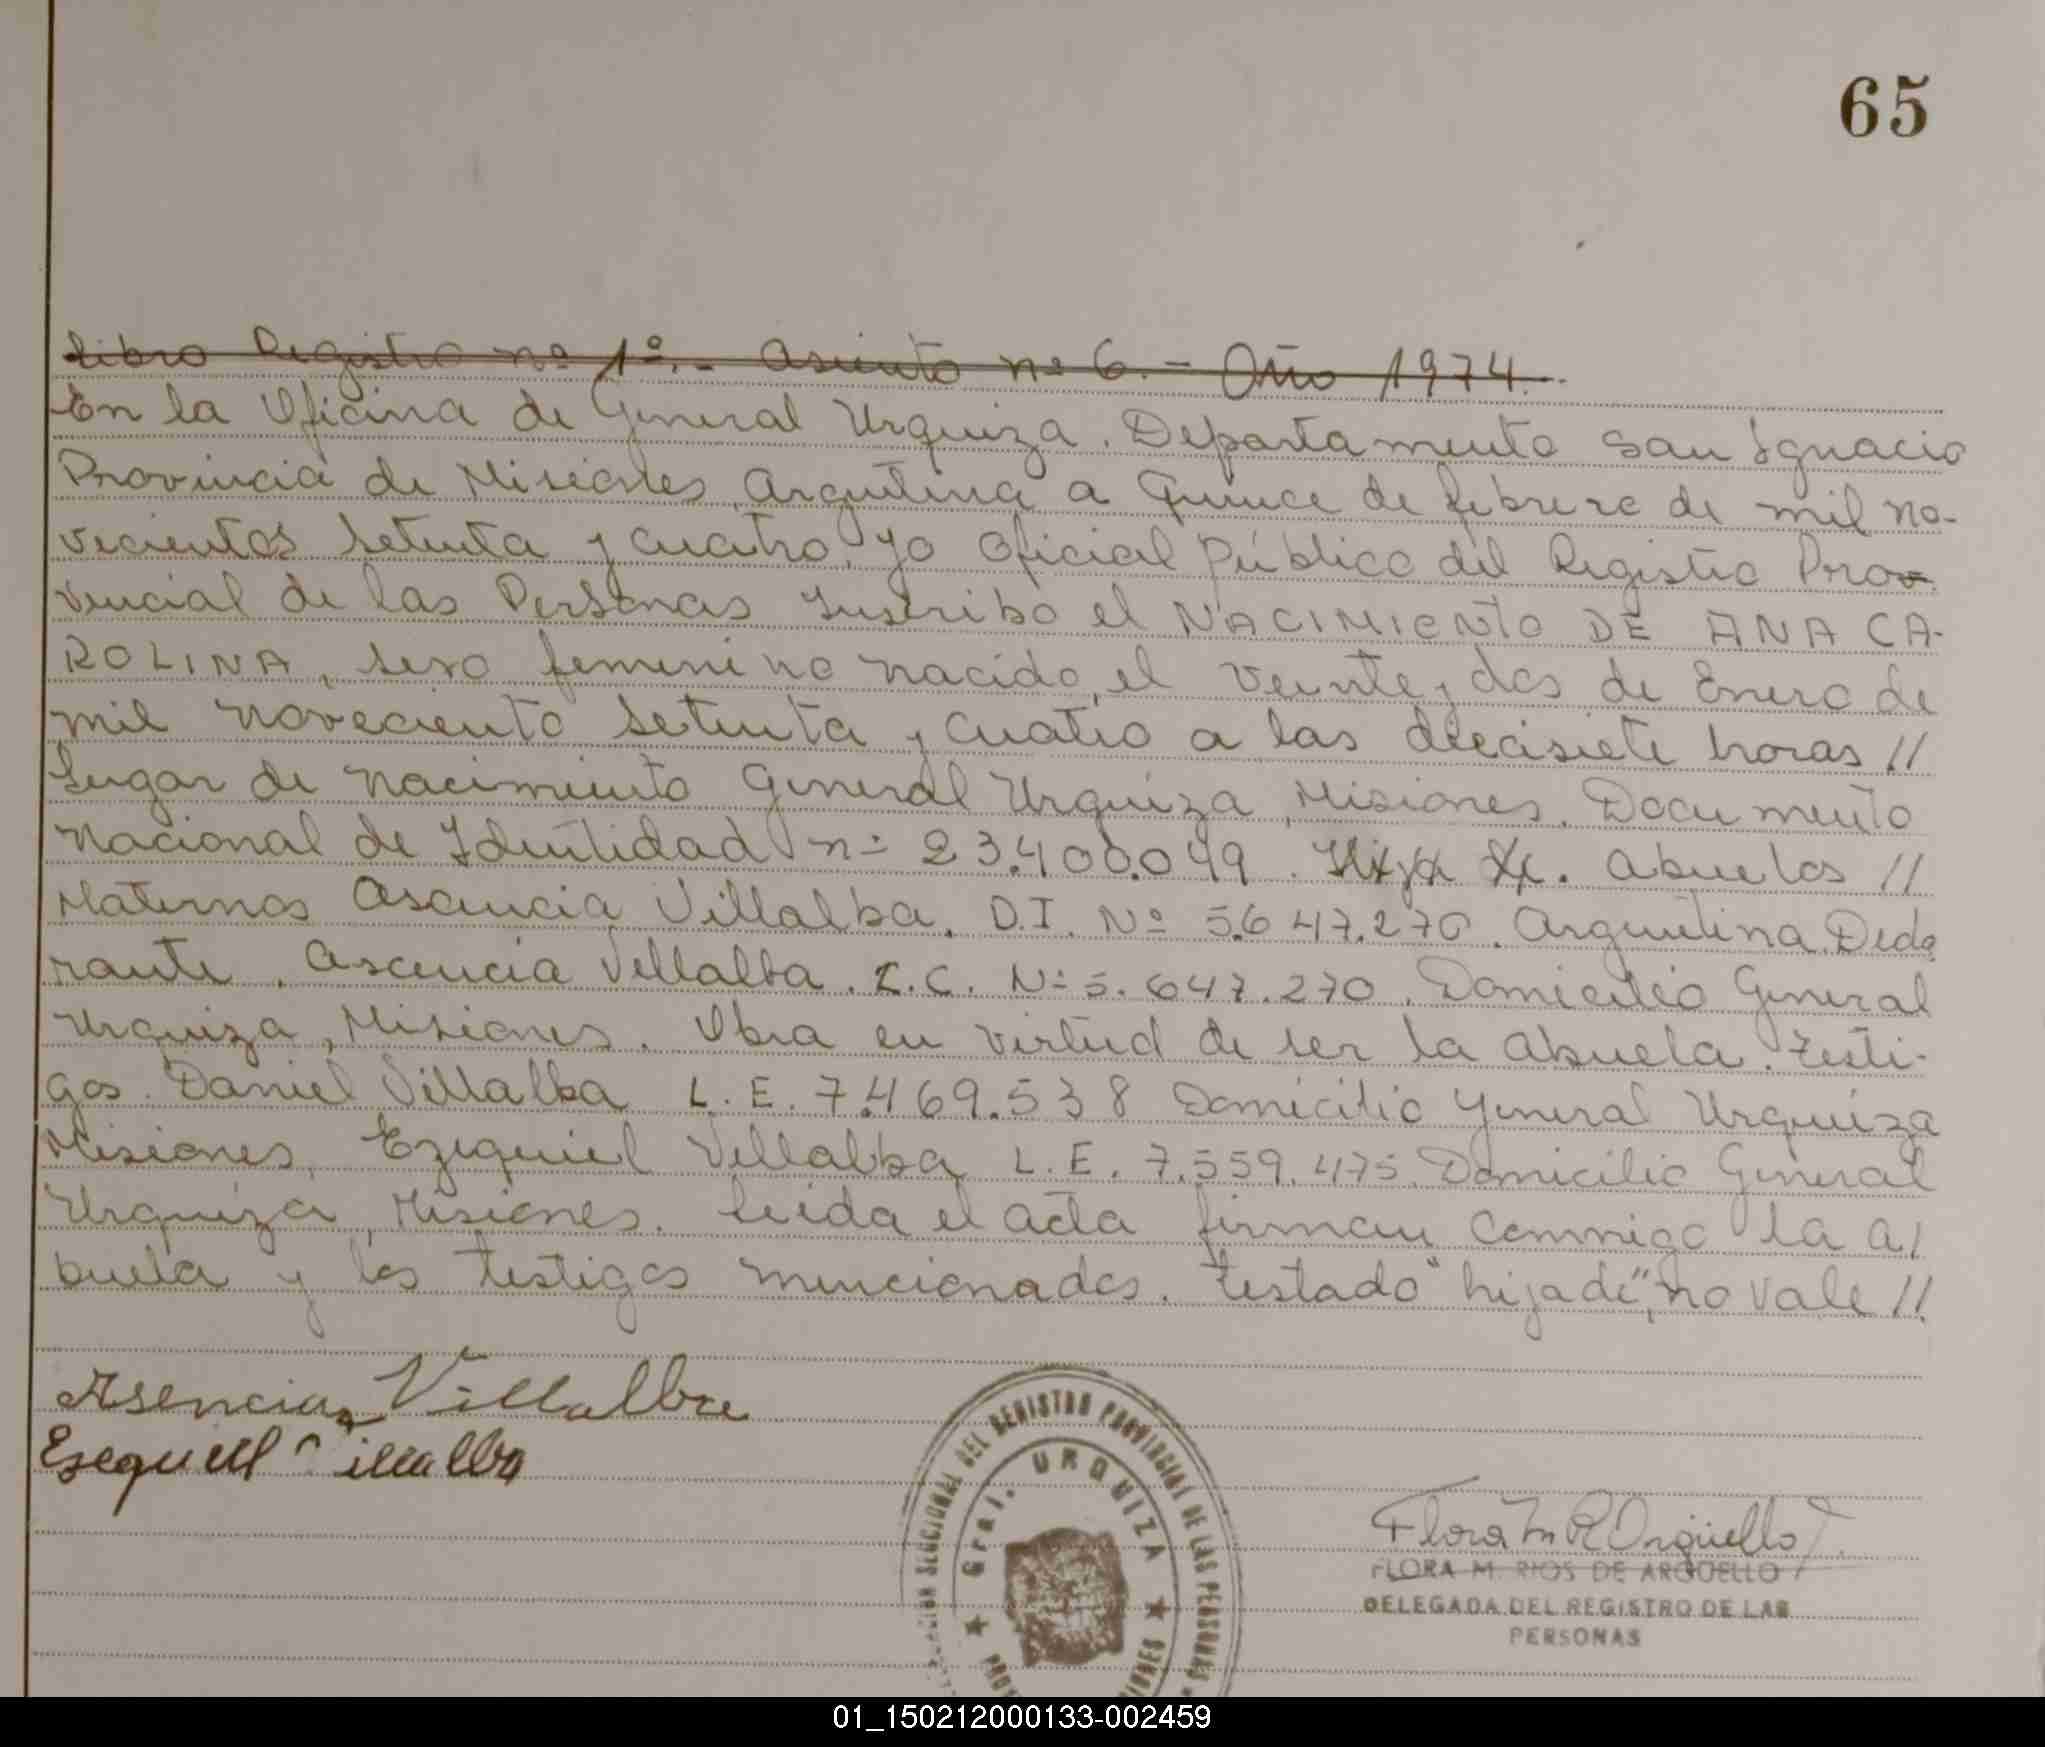 65
Libro Registro nº 1º.- Asiento nº 6.- Año 1974.-
En la Oficina de General Urquiza. Departamento San Ignacio
Provincia de Misiones Argentina a Quince de febrero de mil no-
vecientos setenta y cuatro, yo Oficial Público del Registro Prov
vincial de las Personas Inscribo el NACIMIENTO DE ANA CA-
ROLINA, sexo femenino nacido, el veinte y dos de Enero de
mil noveciento setenta y cuatro a las diecisiete horas //
Lugar de nacimiento General Urquiza, Misiones. Documento
Nacional de Identidad nº 23.400.049. Abuelos //
Maternos Asencia Villalba. D.I. Nº 5.647.270. Argentina. Decla
rante. Ascencia Villalba. L.C. Nº 5.647.270. Domicilio General
Urquiza, Misiones. Obra en virtud de ser la abuela. Testi-
gos. Daniel Villalba L.E. 7.469.538 Domicilio General Urquiza
Misiones, Ezequiel Villalba L.E. 7.559.475. Domicilio General
Urquiza, Misiones. Leida el acta firman conmigo la a/
buela y los testigos mencionados. Testado "hija de", no vale //
Asencia Villalba
Esequiell Villalba
DEL REGISTRO PROVINCIAL DE LAS PERSONAS
Gral. URQUIZA
Flora M R Argüello
FLORA M. RIOS DE ARGÜELLO
DELEGADA DEL REGISTRO DE LAS
PERSONAS
01_150212000133-002459